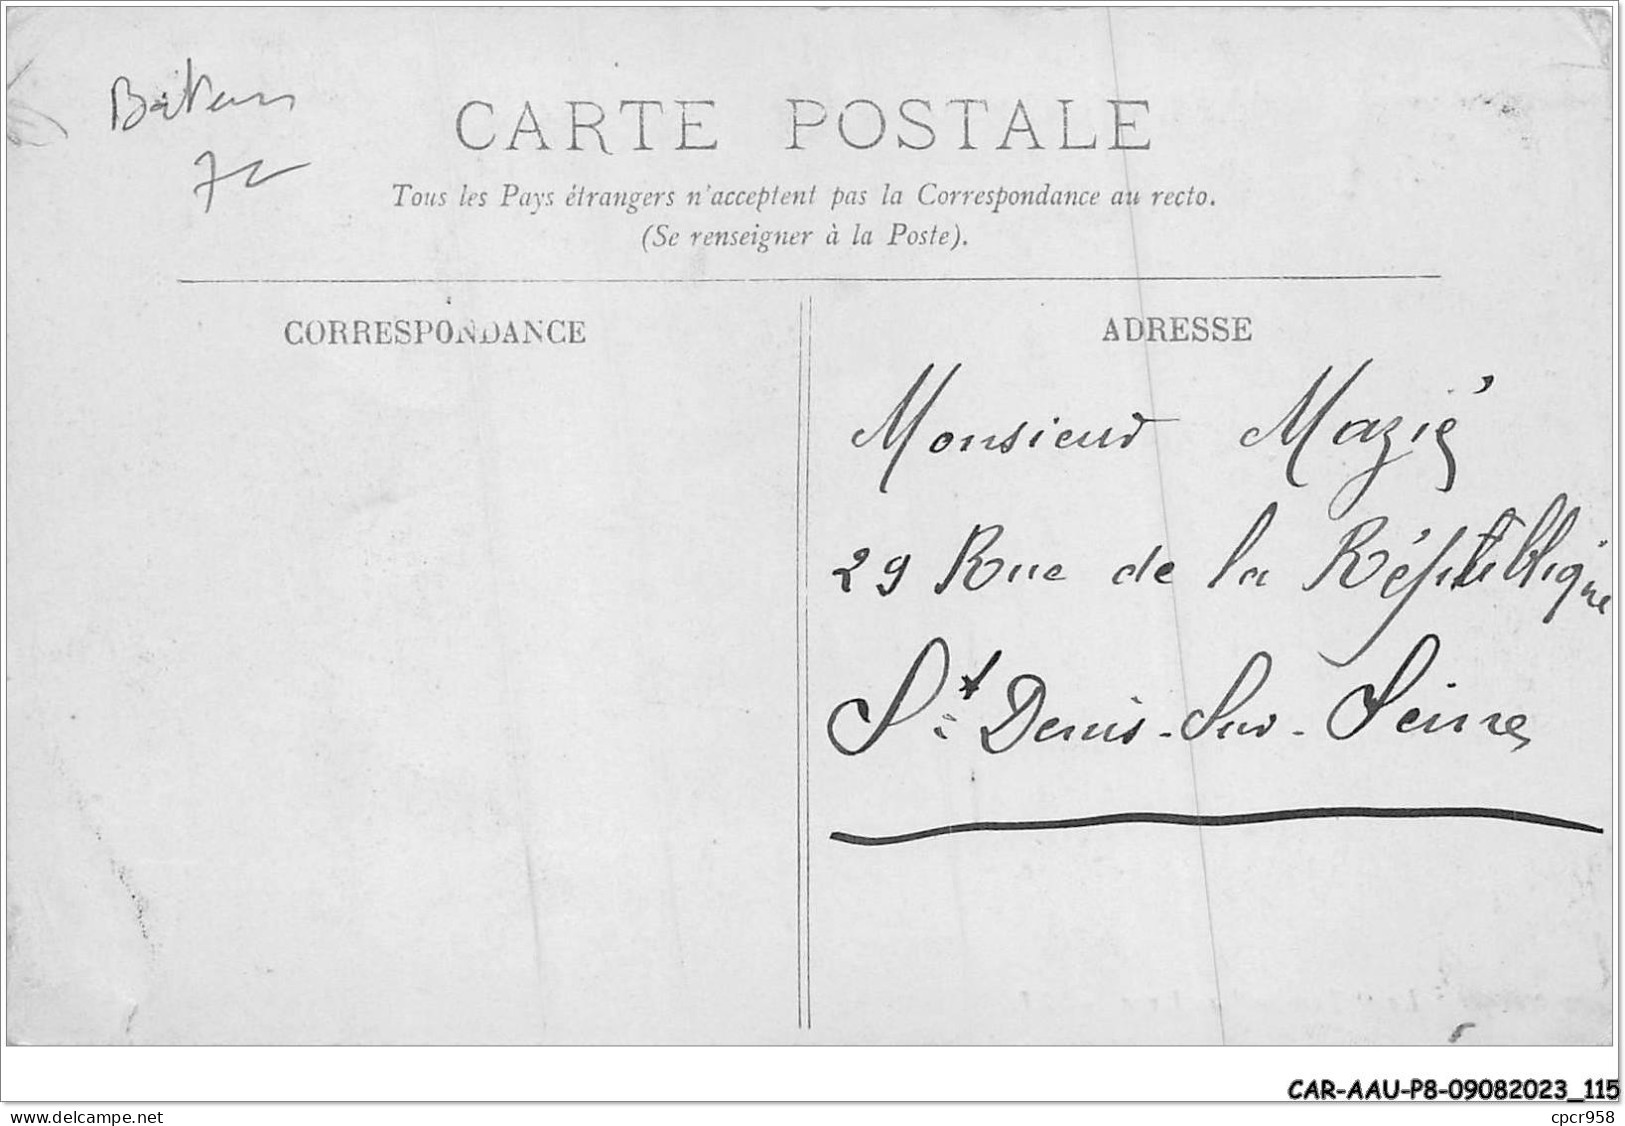 CARTE POSTALE
Tous les Pays étrangers n'acceptent pas la Correspondance au recto.
(Se renseigner à la Poste).
CORRESPONDANCE
ADRESSE
Monsieur Mazié
29 Rue de la République
St Denis-Sur-Seine
CAR-AAU-P8-09082023_115
www.delcampe.net
cpcr958